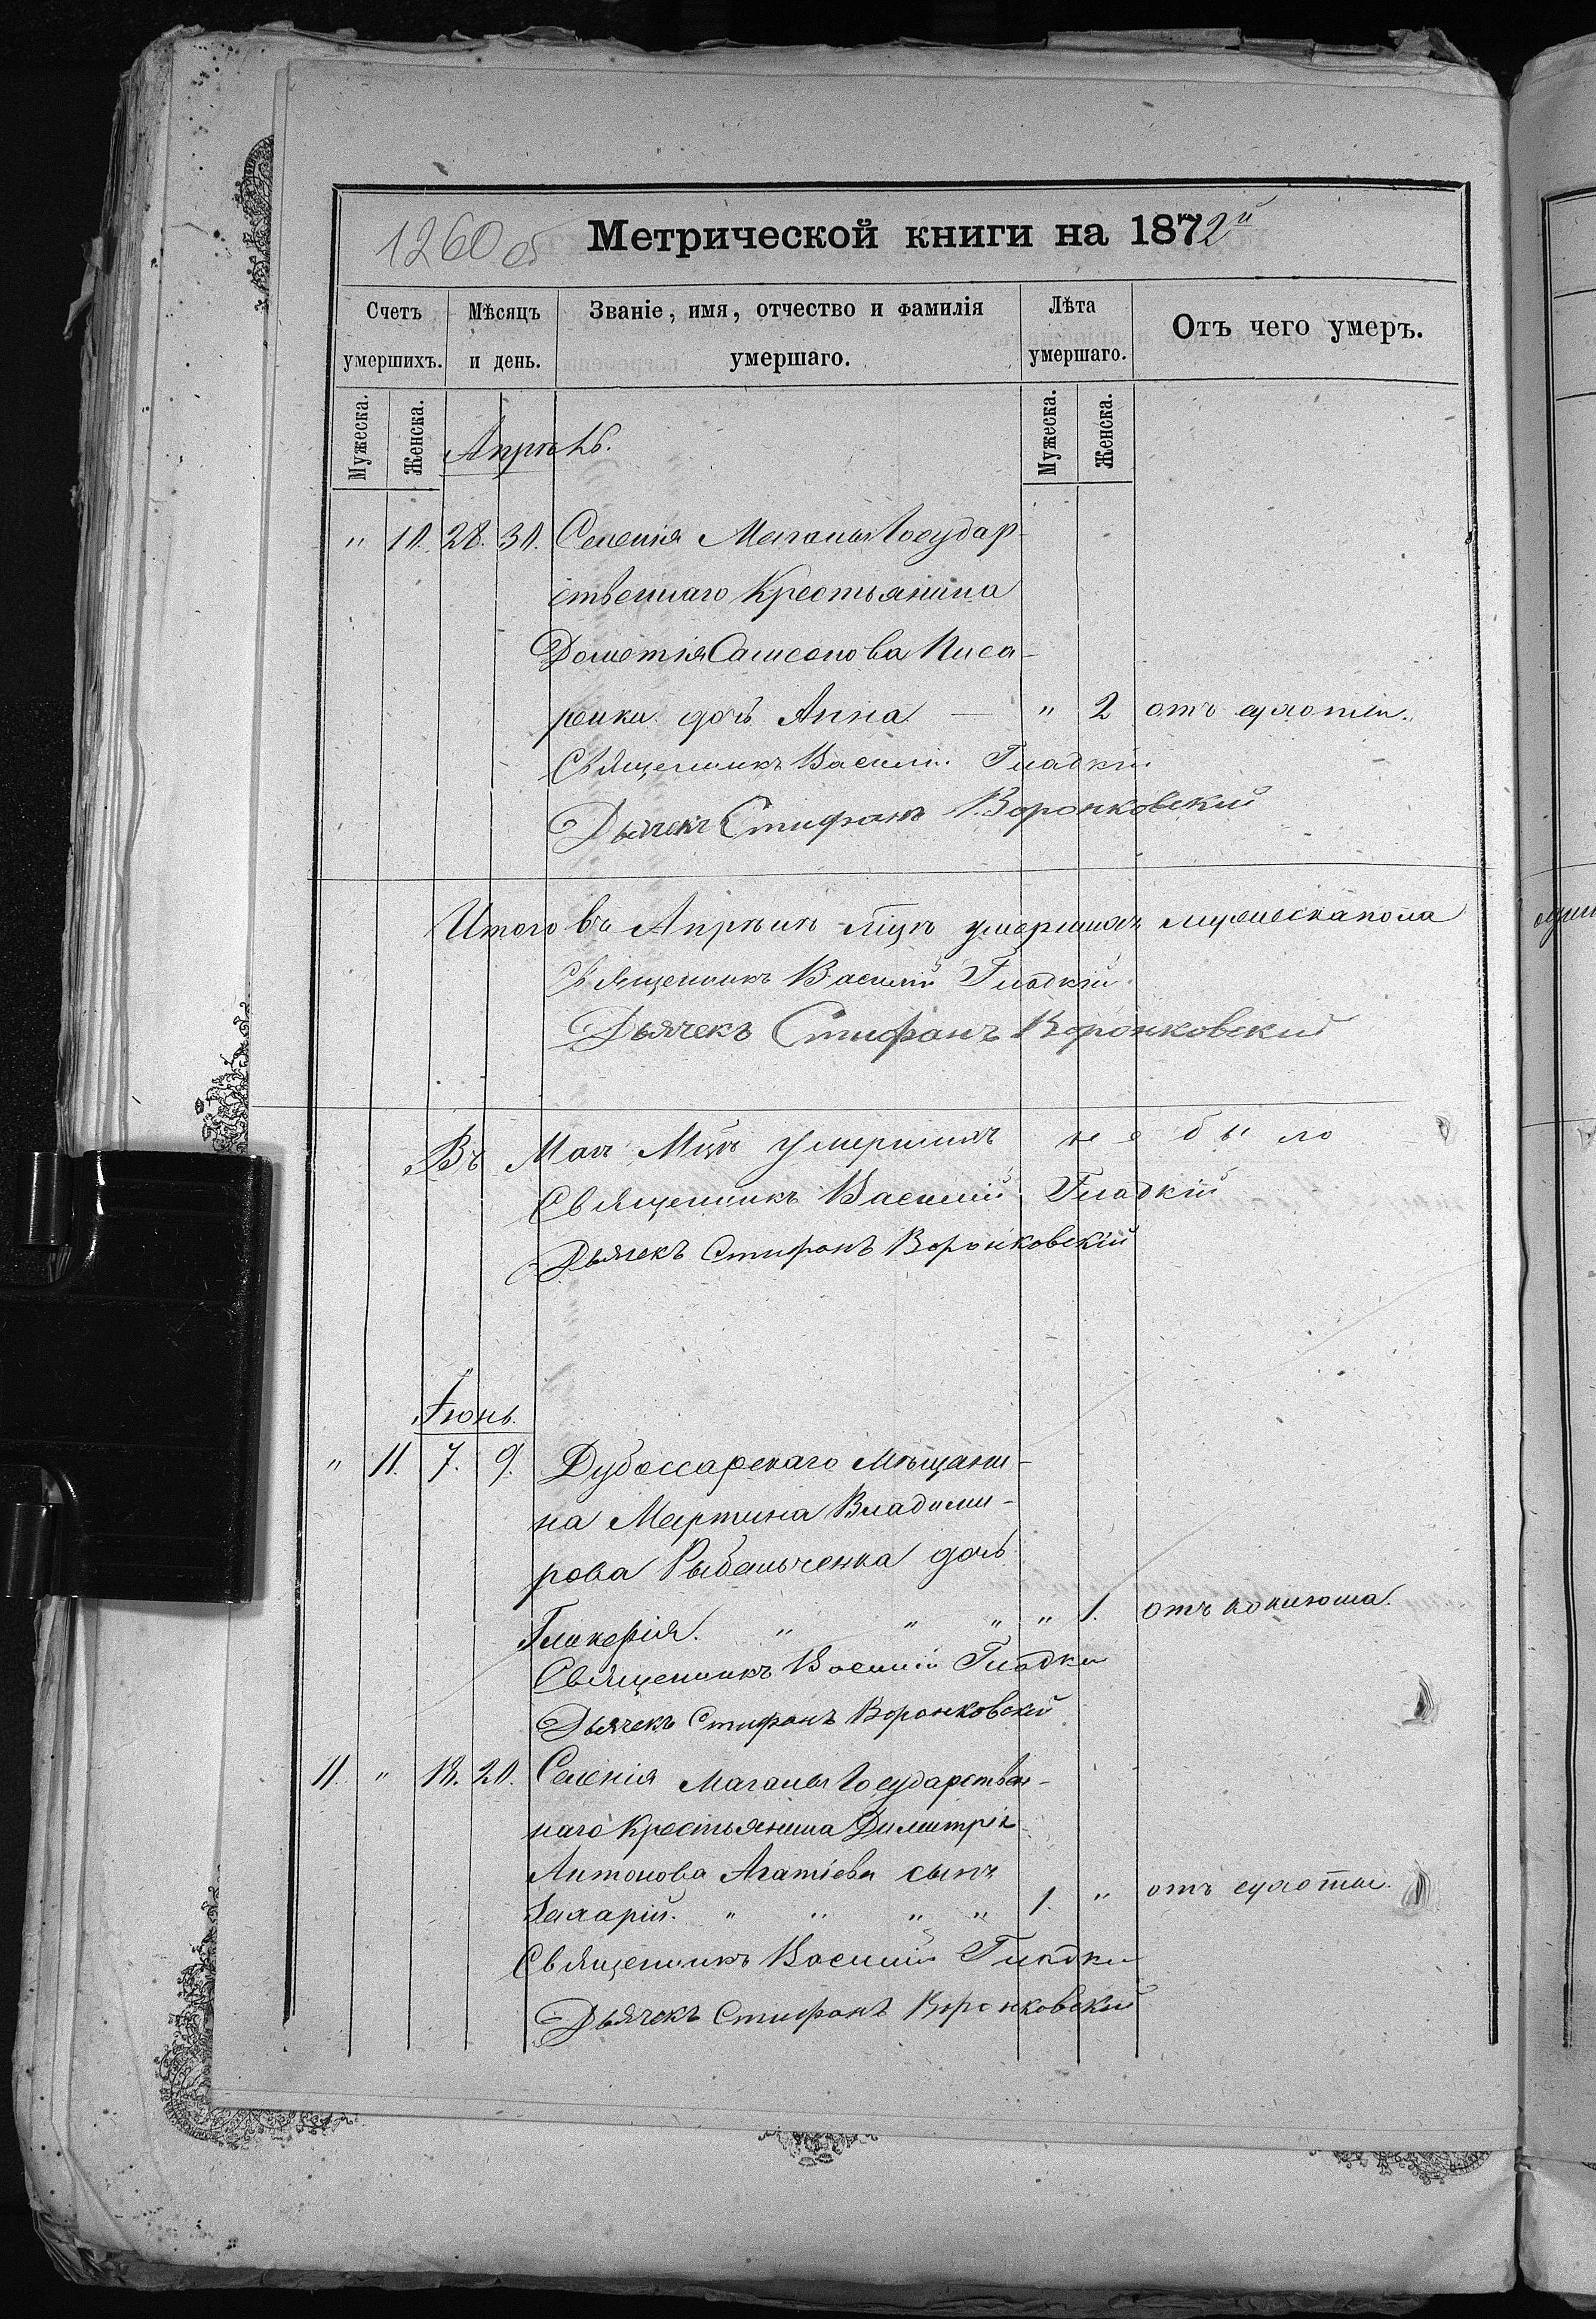 1260 об
Метрической книги на 1872й
Счетъ умершихъ.
Мѣсяцъ и день.
Званіе, имя, отчество и фамилія умершаго.
Лѣта умершаго.
Отъ чего умеръ.
Мужеска. Женска. Мужеска. Женска.
Апрѣль.
" 10. 28. 30. Селенія Маганы Государ-
ственнаго Крестьянина
Дометія Самсонова Писа-
ренки дочь Анна. — " 2 отъ
Священникъ Василій Гладкій
Дьячекъ Стифанъ Воронковскій
Итого въ Апрѣлѣ мцѣ умершихъ мужеска пола
Священникъ Василій Гладкій
Дьячекъ Стифанъ Воронковскій
Въ Маѣ Мцѣ умершихъ не было
Священникъ Василій Гладкій
Дьячекъ Стифанъ Воронковскій
Іюнь.
" 11. 7. 9. Дубоссарскаго мѣщани-
на Мартина Владими-
рова Рыбальченка дочь
Гликерія. " " " " 1. отъ коклюша.
Священникъ Василій Гладкій
Дьячекъ Стифанъ Воронковскій
11. " 18. 20. Селенія Маганы Государствен-
наго Крестьянина Димитрія
Антонова Агатіева сынъ
Захарій. " " " " 1. " отъ сухоты.
Священникъ Василій Гладкій
Дьячекъ Стифанъ Воронковскій